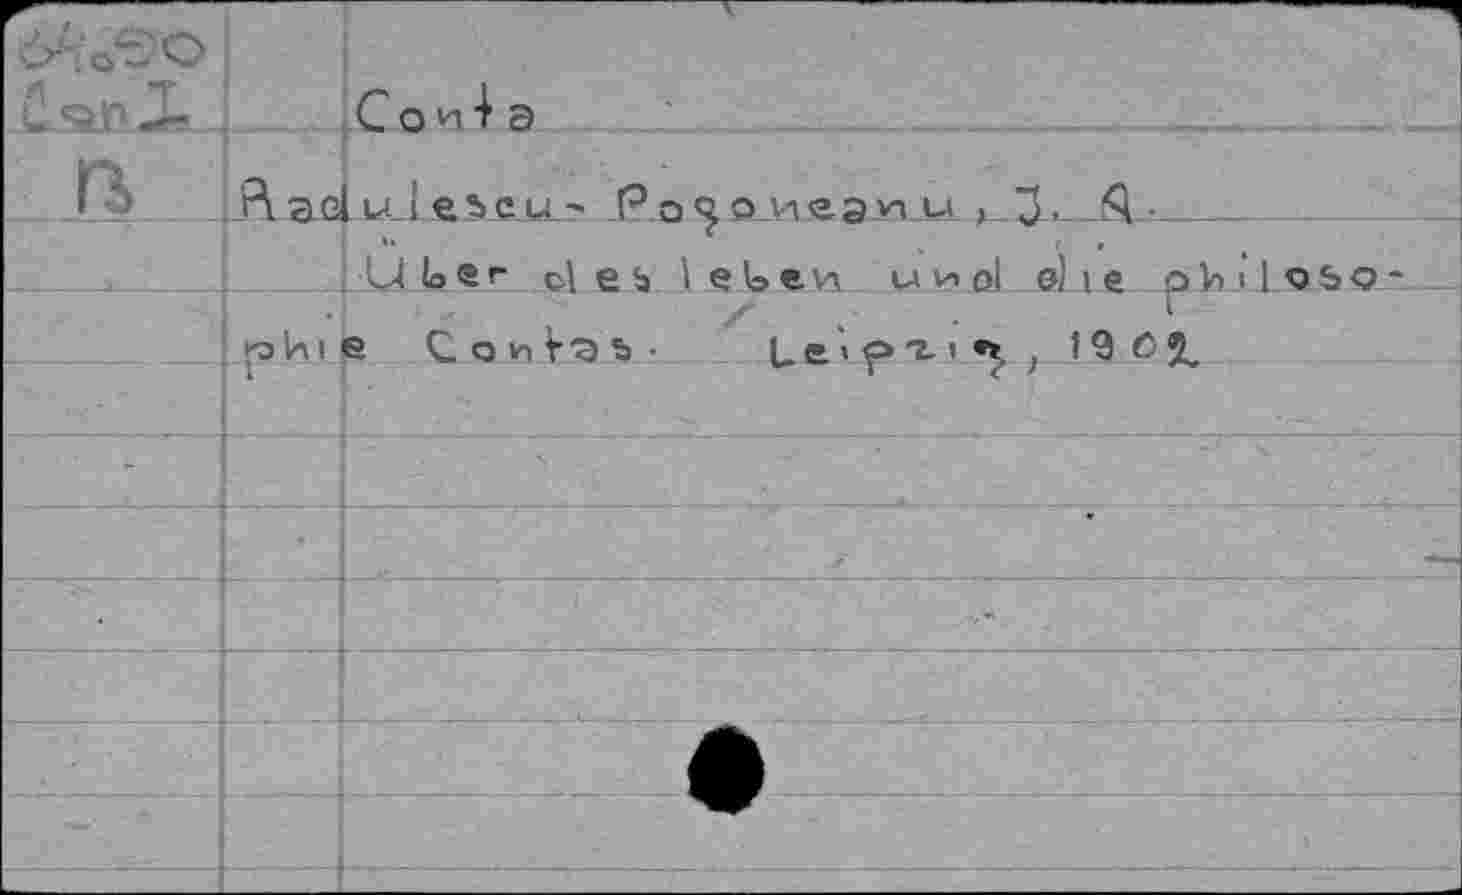 Conta
Radulescu- Pogoneanu, J. A.
Über des leben und die philoso-
phie Contas. Leipzig, 1902